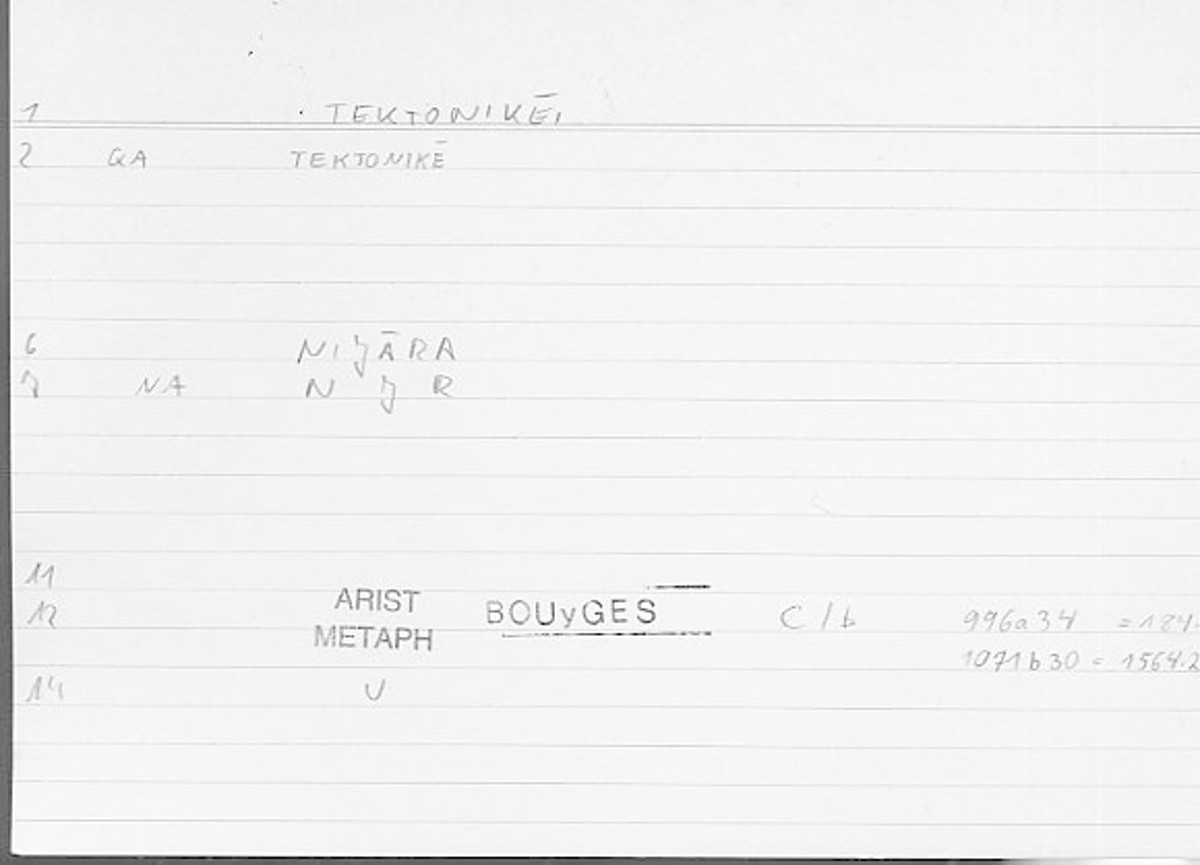 1 · TEKTONIKĒ,
2 QA TEKTONIKĒ
6 NIǦĀRA
7 NA N Ǧ R
11
12 ARIST METAPH BOUyGES C/b 996a34 = 184.
1071b30 = 1564.2
14 U